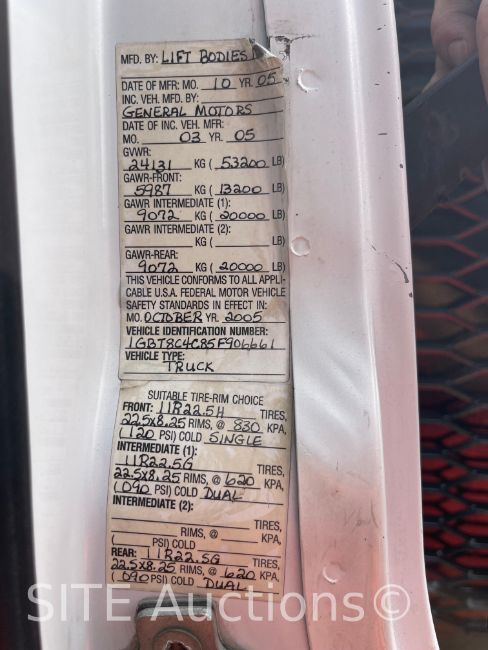 MFD. BY: LIFT BODIES
DATE OF MFR: MO. 10 YR. 05
INC. VEH. MFD. BY:
GENERAL MOTORS
DATE OF INC. VEH. MFR:
MO. 03 YR. 05
GVWR:
24131 KG ( 53200 LB)
GAWR-FRONT:
5987 KG ( 13200 LB)
GAWR INTERMEDIATE (1):
9072 KG ( 20000 LB)
GAWR INTERMEDIATE (2):
KG ( LB)
GAWR-REAR:
9072 KG ( 20000 LB)
THIS VEHICLE CONFORMS TO ALL APPLI-
CABLE U.S.A. FEDERAL MOTOR VEHICLE
SAFETY STANDARDS IN EFFECT IN:
MO. OCTOBER YR. 2005
VEHICLE IDENTIFICATION NUMBER:
1GBT8C4C85F906661
VEHICLE TYPE:
TRUCK
SUITABLE TIRE-RIM CHOICE
FRONT: 11R22.5H TIRES,
22.5x8.25 RIMS, @ 830 KPA,
(120 PSI) COLD SINGLE
INTERMEDIATE (1):
11R22.5G TIRES,
22.5x8.25 RIMS, @ 620 KPA,
(090 PSI) COLD DUAL
INTERMEDIATE (2):
TIRES,
RIMS, @ KPA,
( PSI) COLD
REAR: 11R22.5G TIRES,
22.5x8.25 RIMS, @ 620 KPA,
(090 PSI) COLD DUAL
SITE Auctions©